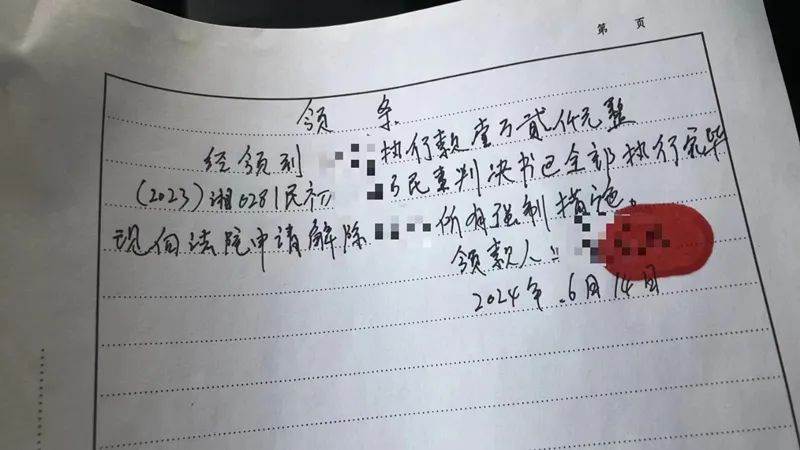 第 页
领 条
经领到 执行款壹万贰仟元整
(2023)湘0281民初 号民事判决书已全部执行完毕
现向法院申请解除 所有强制措施。
领款人：
2024年.6月14日